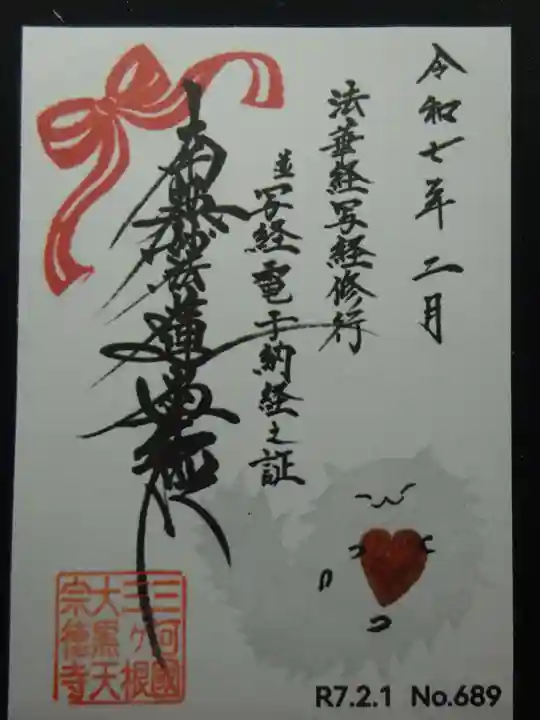 令和七年二月
法華経写経修行
並写経電子納経之証
南無妙法蓮華経
三河國
三ヶ根
大黒天
宗徳寺
R7.2.1 No.689